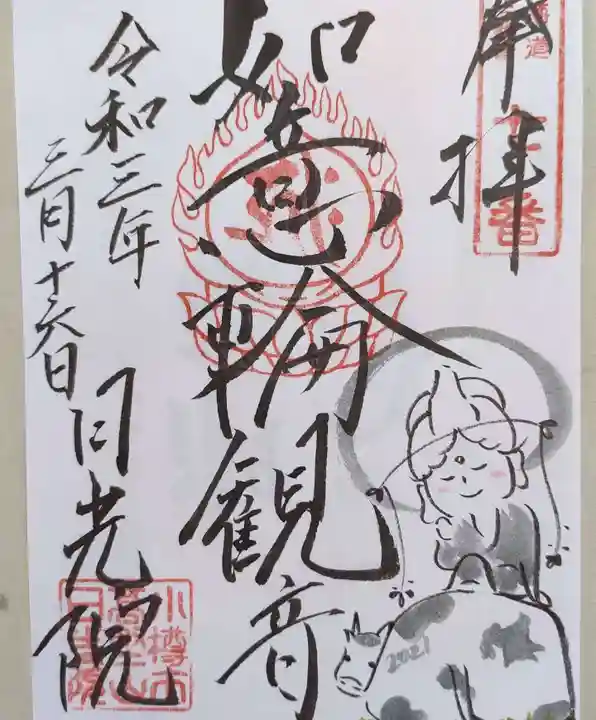 奉拝
如意輪観音
令和三年
三月十六日
日光院
小樽市
高野山
日光院
2021